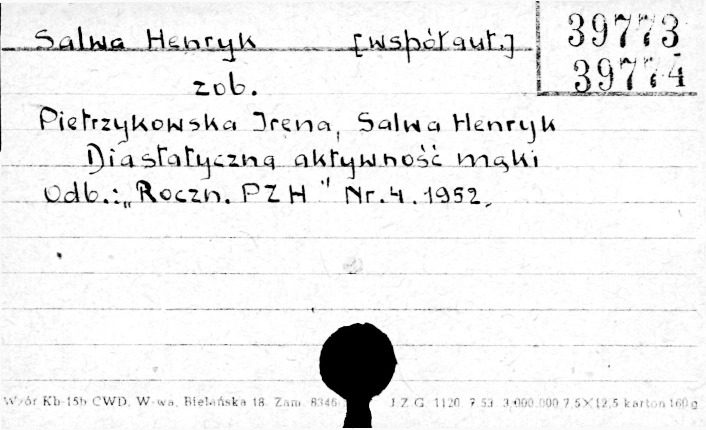 39773
Salwa Henryk [współaut.]
39774
zob.
Pietrzykowska Irena, Salwa Henryk
Diastatyczna aktywność mąki
Odb.: „Roczn. PZH" Nr. 4. 1952.
Wzór Kb-15b CWD, W-wa, Bielańska 18. Zam. 8346 J.Z.G. 1120. 7.53 3.000.000 7,5×12,5 karton 160 g